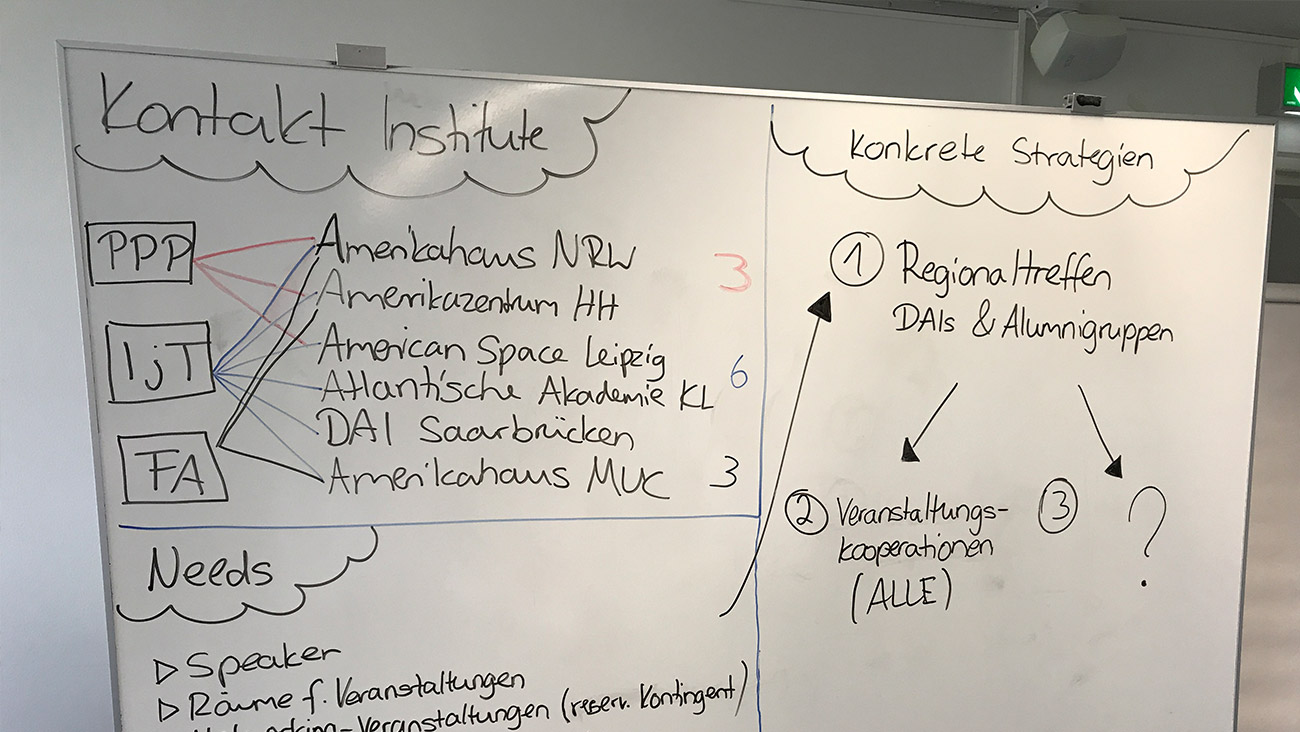 Kontakt Institute
PPP
IjT
FA
Amerikahaus NRW
Amerikazentrum HH
American Space Leipzig
Atlantische Akademie KL
DAI Saarbrücken
Amerikahaus MUC
3
6
3
Needs
▷ Speaker
▷ Räume f. Veranstaltungen
-Veranstaltungen (reserv. Kontingent)
Konkrete Strategien
① Regionaltreffen
DAIs & Alumnigruppen
② Veranstaltungs-
kooperationen
(ALLE)
③ ?